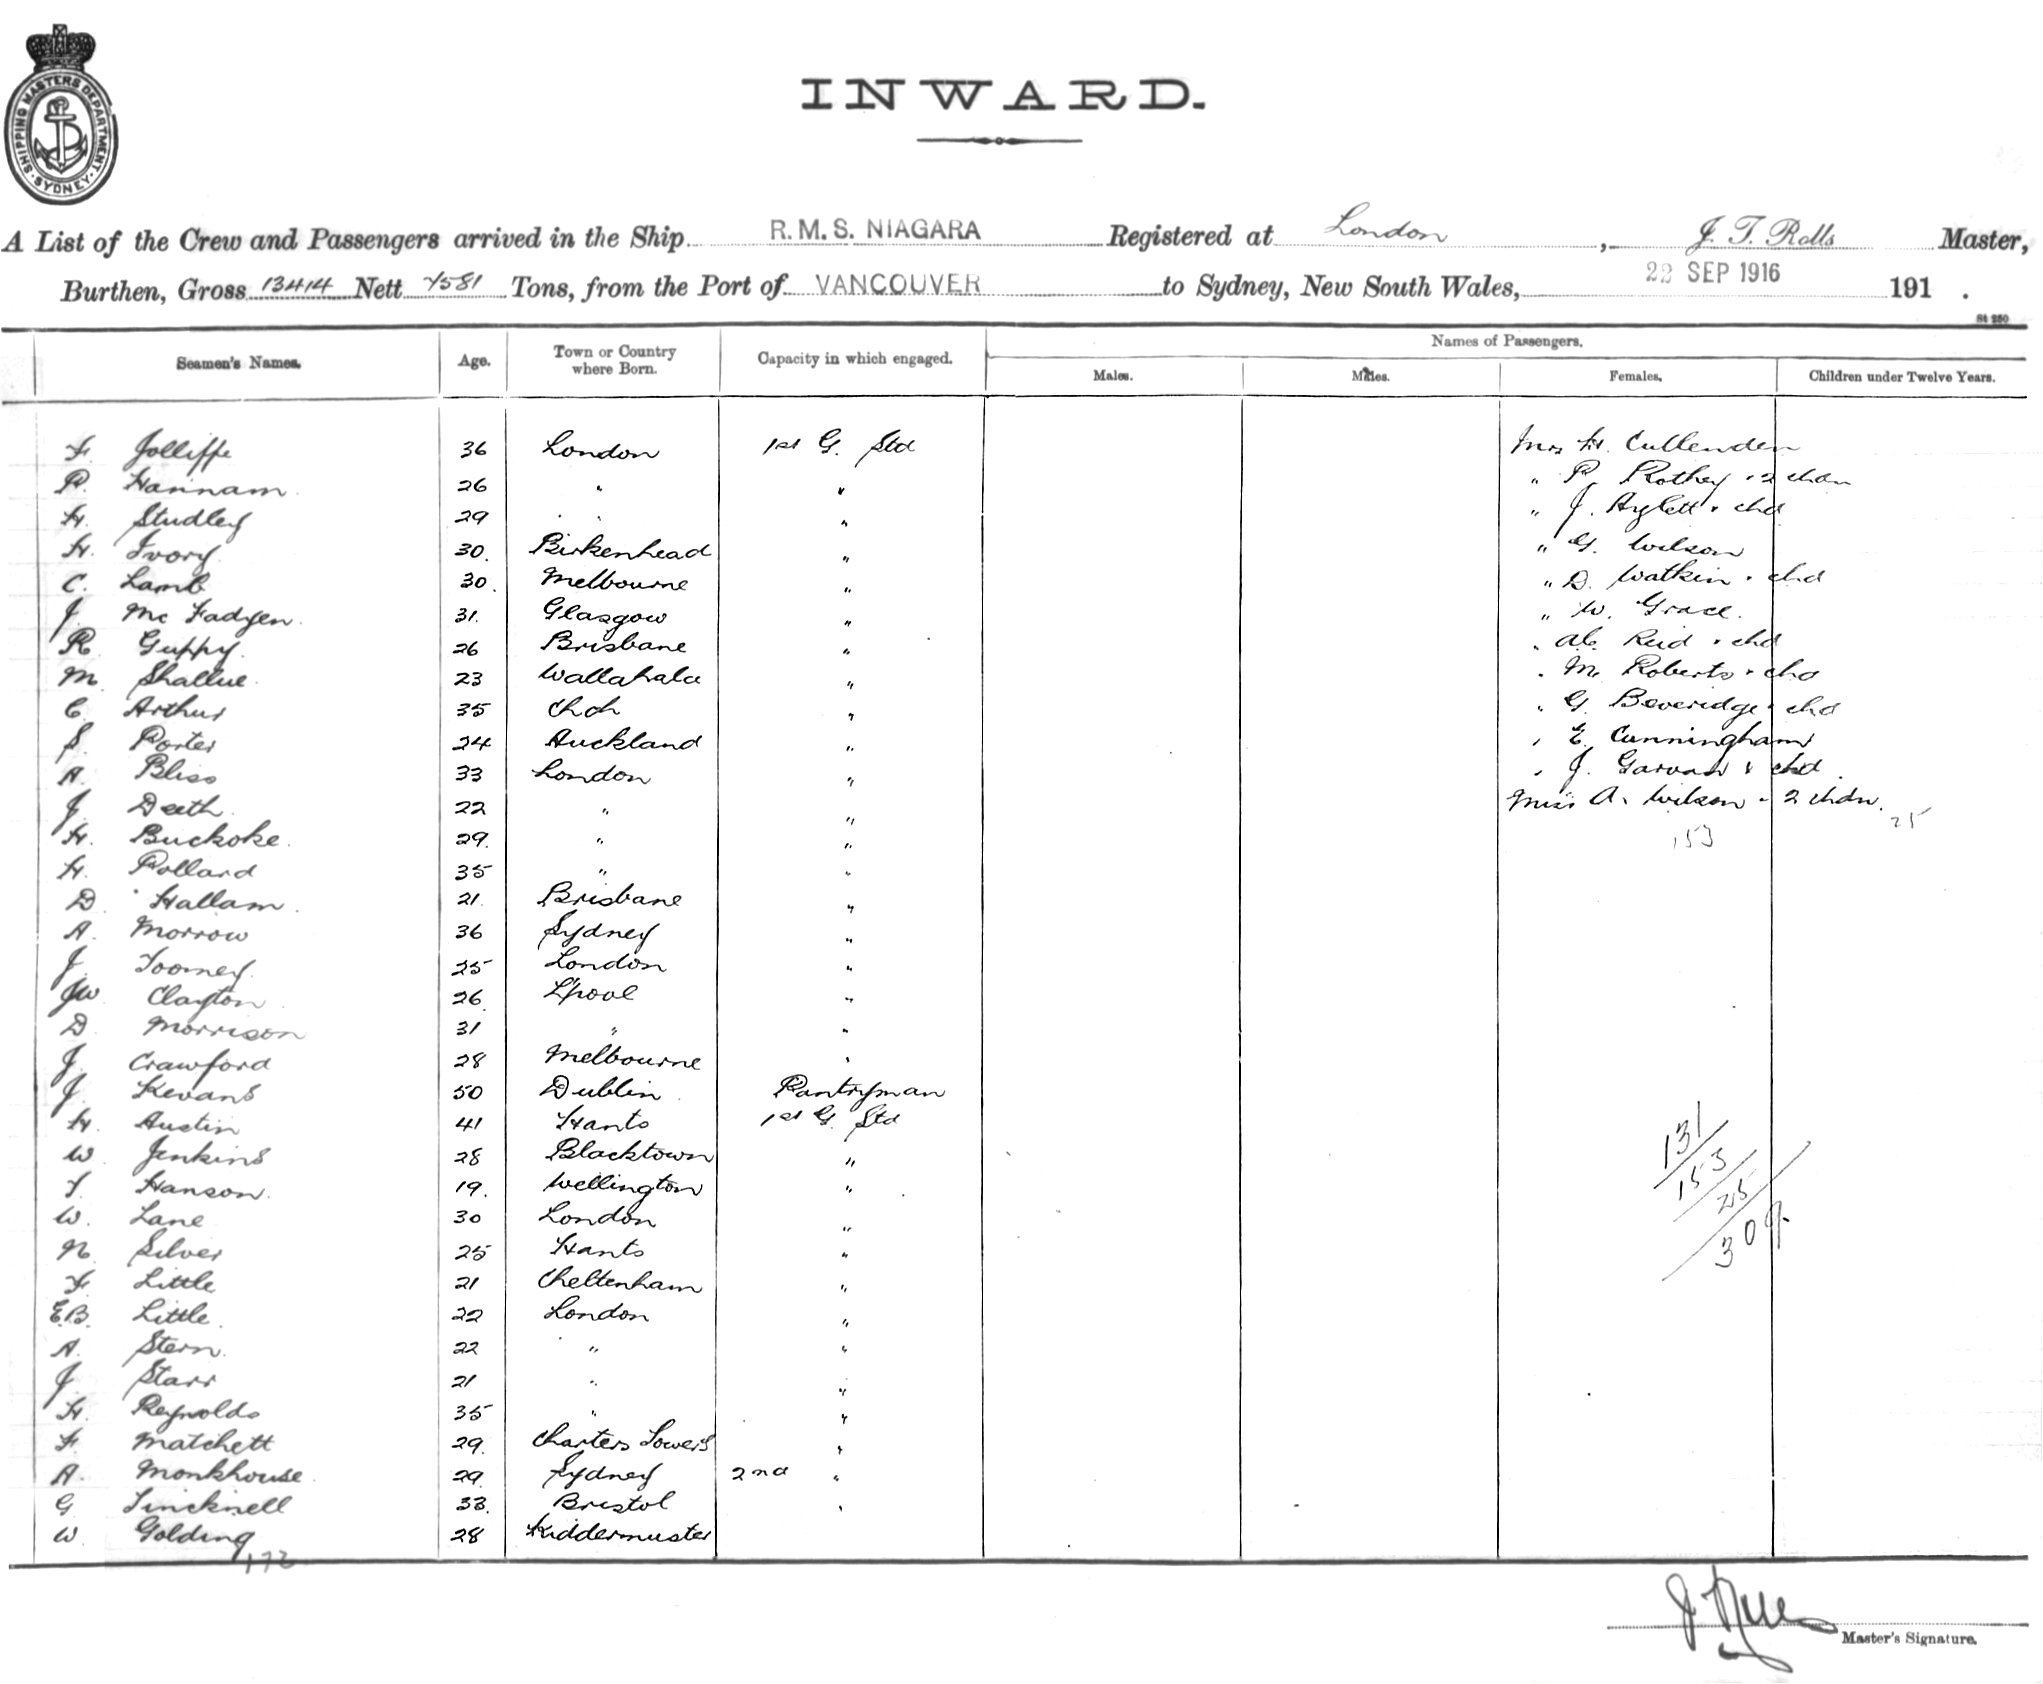 SHIPPING MASTERS DEPARTMENT · SYDNEY ·
INWARD.
A List of the Crew and Passengers arrived in the Ship R.M.S. NIAGARA Registered at London, J. T. Rolls Master,
Burthen, Gross 13414 Nett 7581 Tons, from the Port of VANCOUVER to Sydney, New South Wales, 22 SEP 1916 191 .
St 250
Seamen's Names. Age. Town or Country where Born. Capacity in which engaged. Names of Passengers.
Males. Males. Females. Children under Twelve Years.
F. Jolliffe 36 London 1st G. Std Mrs H. Cullenden
P. Hannam 26 " " " P. Rothey & 2 chdn
H. Studley 29 " " " J. Aylett & chd
H. Ivory 30. Birkenhead " " G. Wilson
C. Lamb 30. Melbourne " " D. Watkin & chd
J. McFadyen 31. Glasgow " " W. Grace.
R. Guppy. 26 Brisbane " " Reid & chd
M. Shallue. 23 Wallahala " " M. Roberts & chd
C. Arthur 35 Chch " " G. Beveridge & chd
S. Porter 24 Auckland " " E. Cunningham
A. Bliss 33 London " " J. Garvan & chd.
J. Deeth. 22 " " Miss A. Wilson & 2 chdn. 25
H. Buckoke. 29. " " 153
H. Pollard 35 " "
D. Hallam. 21. Brisbane "
A. Morrow 36 Sydney "
J. Toomey. 25 London "
JW Clayton 26. L'pool "
D. Morrison 31 " "
J. Crawford 28 Melbourne "
J. Kevans 50 Dublin Pantryman
H. Austin 41 Hants 1st G. Std
W. Jenkins 28 Blacktown " 131
T. Hanson. 19. Wellington " 153
W. Lane 30 London " 25
N. Silver 25 Hants " 309.
F. Little 21 Cheltenham "
E.B. Little. 22 London "
A. Stern. 22 " "
J. Starr 21 " "
H. Reynolds 35 " "
F. Matchett 29. Charters Towers "
A. Monkhouse 29. Sydney 2nd "
G Tincknell 33. Bristol "
W. Golding 28 Kidderminster
172
J. Rolls
Master's Signature.